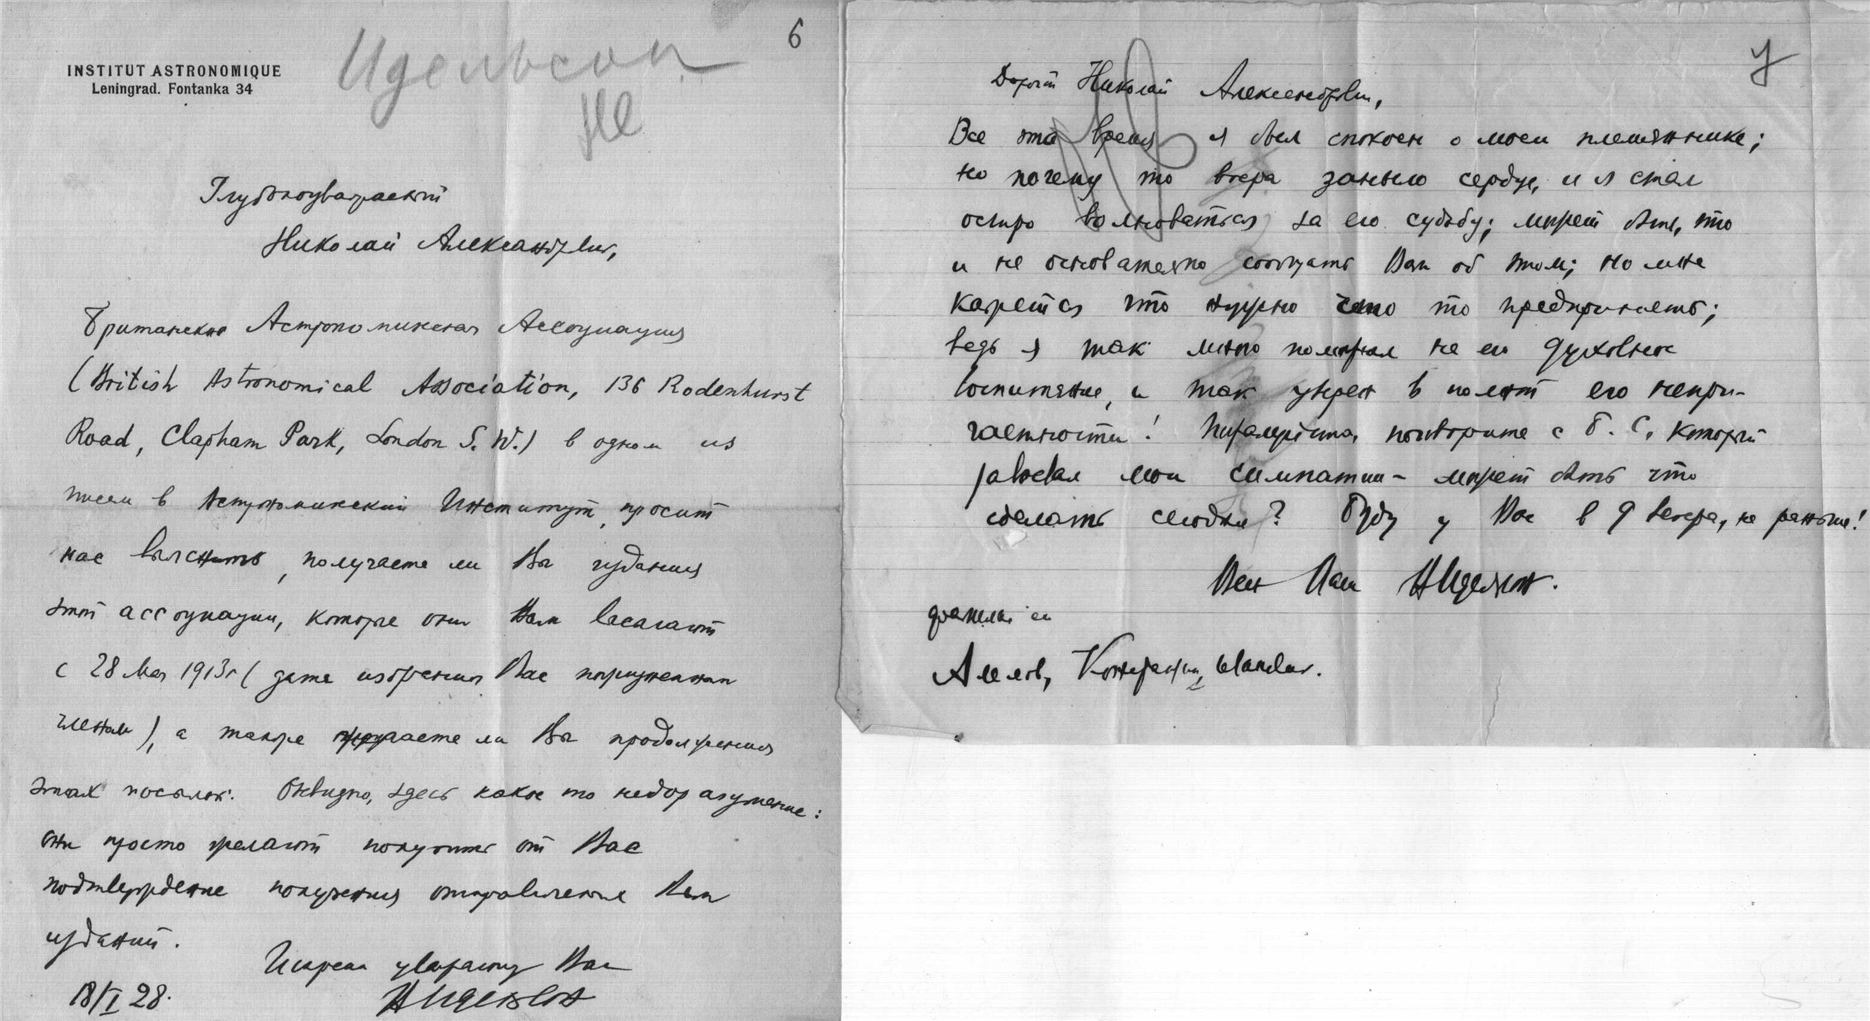 6
Идельсон
Не
INSTITUT ASTRONOMIQUE
Leningrad. Fontanka 34
Глубокоуважаемый
Николай Александрович,
Британская Астрономическая Ассоциация
(British Astronomical Association, 136 Rodenhurst
Road, Clapham Park, London S.W.) в одном из
писем в Астрономический Институт, просит
нас выяснить, получаете ли Вы издания
этой ассоциации, которые они Вам высылают
с 28 Мая 1913г (дата избрания Вас
членом), а также ли Вы продолжения
этих посылок. Очевидно, здесь какое то недоразумение:
они просто желают получить от Вас
подтверждение получения отправленных Вам
изданий.
Искренно уважающий Вас
18/I 28.
НИдельсон
7
Дорогой Николай Александрович,
Все это время я был спокоен о моем племяннике;
но почему то вчера заныло сердце, и я стал
остро волноваться за его судьбу; может быть, это
и не основательно сообщать Вам об этом; но мне
кажется что нужно что то предпринять;
ведь я так много положил на его духовное
воспитание, и так уверен в полной его непри-
частности! Пожалуйста, поговорите с Б. С. который
завоевал мои симпатии – может быть что
сделать сегодня? Буду у Вас в 9 вечера, не раньше!
Весь Ваш НИдельсон.